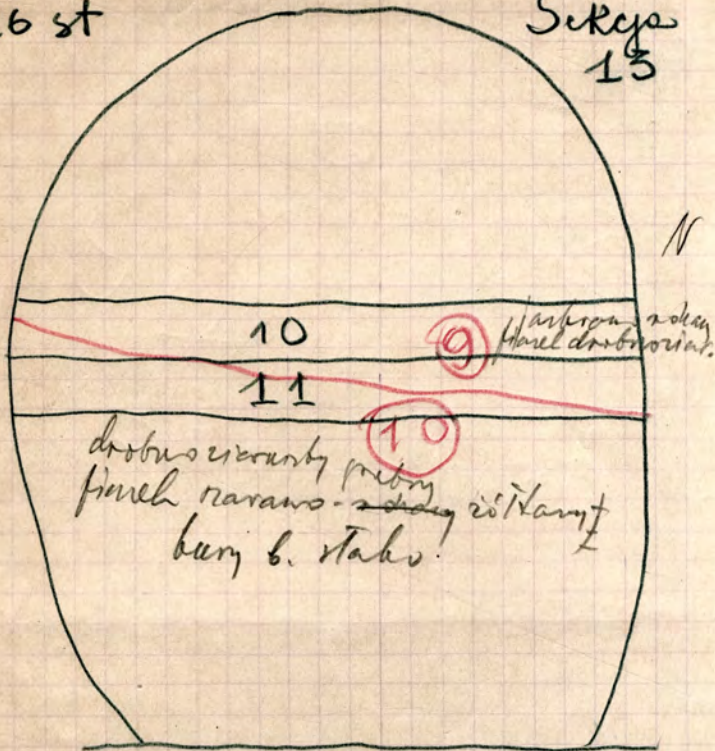 6 st
Sekcja
13
N
10
9
piasek drobnoziar.
11
10
drobnoziarnisty gruby
piasek szarawo- żółtawy
bury b. słabo.